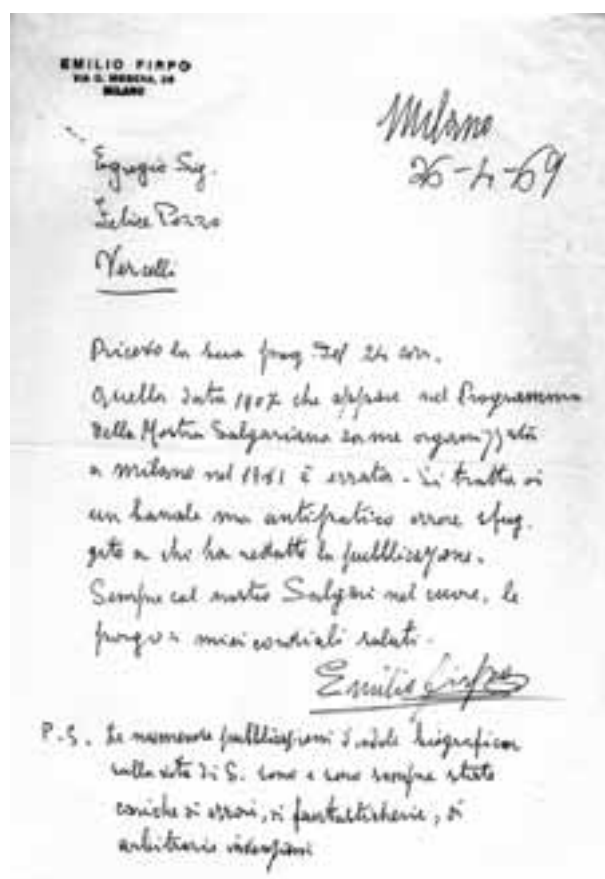 EMILIO FIRPO
VIA G. MODENA, 28
MILANO
Milano
26-4-69
Egregio Sig.
Felice Pozzo
Vercelli
Ricevo la sua preg. del 24 corr.
Quella data 1907 che appare nel Programma
della Mostra Salgariana da me organizzata
a Milano nel 1961 è errata. Si tratta di
un banale ma antipatico errore sfug-
gito a chi ha redatto la pubblicazione.
Sempre col nostro Salgari nel cuore, le
porgo i miei cordiali saluti.
Emilio Firpo
P.S. Le numerose pubblicazioni d'indole biografica
sulla vita di S. sono e sono sempre state
cariche di errori, di fantasticherie, di
arbitrarie invenzioni